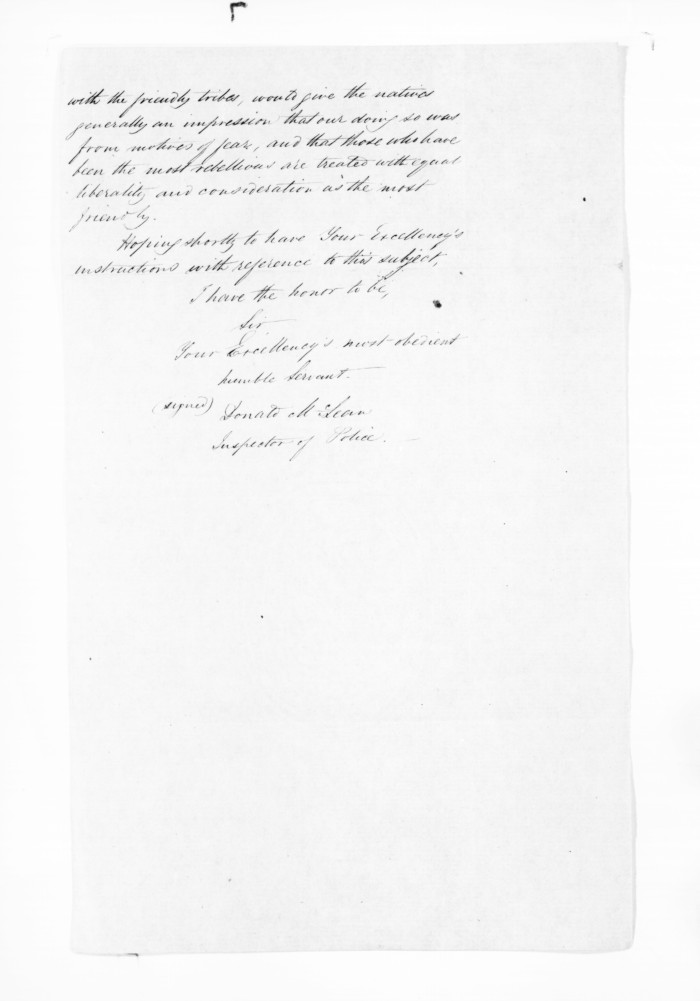 with the friendly tribes, would give the natives
generally an impression that our doing so was
from motives of fear, and that those who have
been the most rebellious are treated with equal
liberality and consideration as the most
friendly.
Hoping shortly to have Your Excellency's
instructions with reference to this subject,
I have the honor to be,
Sir
Your Excellency's most obedient
humble Servant
(signed) Donald McLean
Inspector of Police.